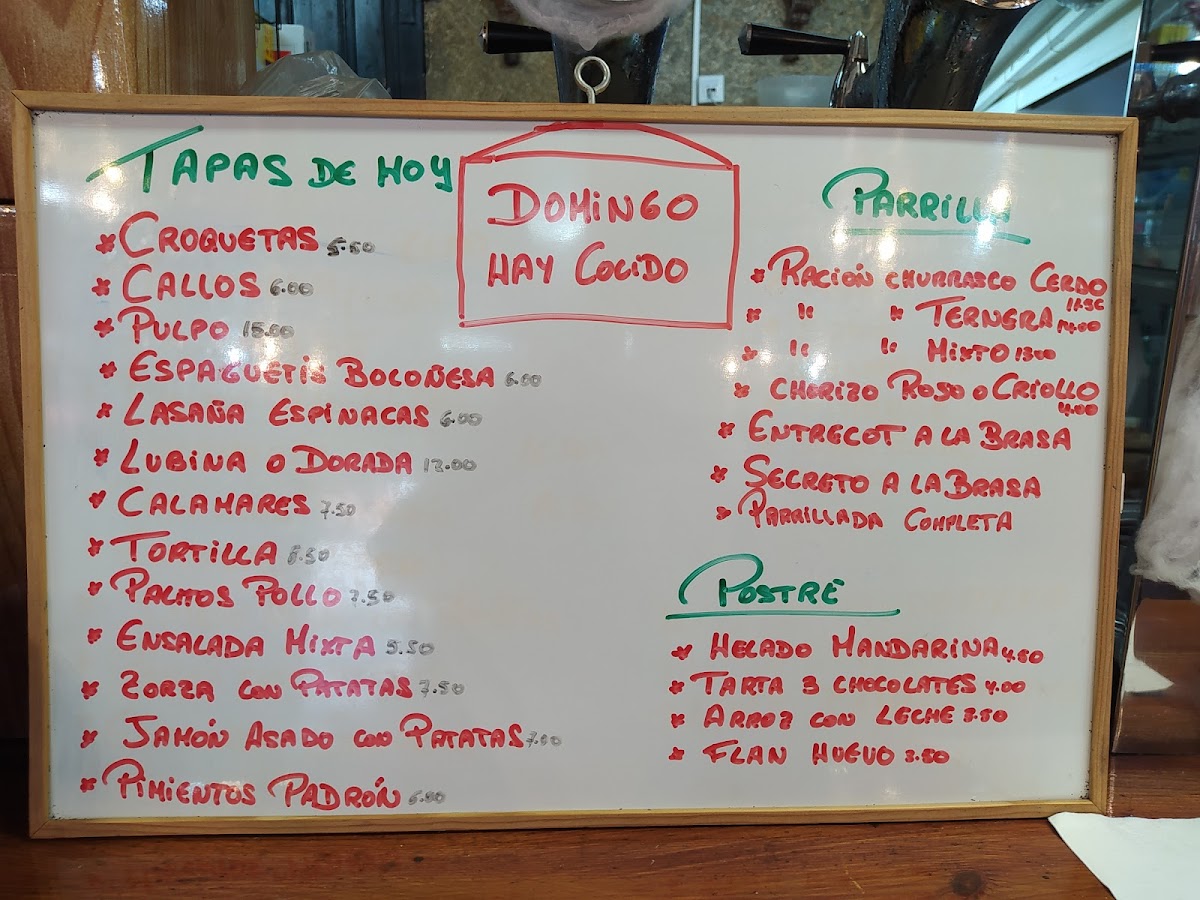 TAPAS DE HOY
* CROQUETAS 5.50
* CALLOS 6.00
* PULPO 15.00
* ESPAGUETIS BOLOÑESA 6.00
* LASAÑA ESPINACAS 6.00
* LUBINA O DORADA 12.00
* CALAMARES 7.50
* TORTILLA
* PALMOS POLLO 7.50
* ENSALADA MIXTA 5.50
* ZORZA CON PATATAS 7.50
* JAMÓN ASADO CON PATATAS 7.00
* PIMIENTOS PADRÓN 6.00
DOMINGO
HAY COCIDO
PARRILLA
* RACIÓN CHURRASCO CERDO
* " " TERNERA 14.00
* " " MIXTO 13.00
* CHORIZO ROJO O CRIOLLO
4.00
* ENTRECOT A LA BRASA
* SECRETO A LA BRASA
* PARRILLADA COMPLETA
POSTRE
* HELADO MANDARINA 4.50
* TARTA 3 CHOCOLATES 4.00
* ARROZ CON LECHE 3.50
* FLAN HUEVO 3.50